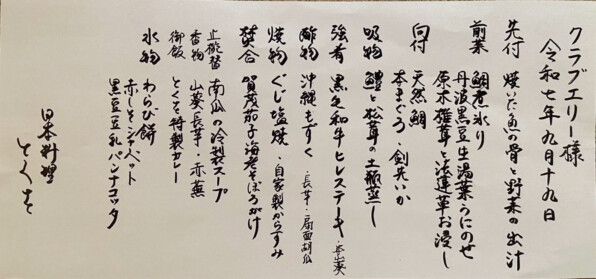 クラブエリー様
令和七年九月十九日
先付 焼いた魚の骨と野菜の出汁
前菜 鯛煮氷り
丹波黒豆生湯葉うにのせ
原木椎茸と法連草お浸し
向付 天然鯛
本まぐろ・剣先いか
吸物 鱧と松茸の土瓶蒸し
強肴 黒毛和牛ヒレステーキ・本山葵
酢物 沖縄もずく・長芋・扇面胡瓜
焼物 ぐじ塩焼・自家製からすみ
焚合 賀茂茄子海老そぼろがけ
止椀替 南瓜の冷製スープ
香物 山葵長芋・赤蕪
御飯 とくを特製カレー
水物 わらび餅
赤しそシャーベット
黒豆豆乳パンナコッタ
日本料理
とくを